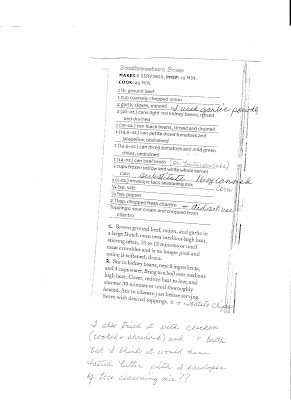 Southwestern Soup
MAKES 8 SERVINGS; PREP: 15 MIN.,
COOK: 45 MIN.
1 lb. ground beef
1 cup coarsely chopped onion
2 garlic cloves, minced - I used garlic powder
2 (16-oz.) cans light red kidney beans, rinsed
and drained
1 (15-oz.) can black beans, rinsed and drained
1 (14.5-oz.) can petite diced tomatoes and
jalapeños, undrained
1 (14.5-oz.) can diced tomatoes and mild green
chilies, undrained
1 (14-oz.) can beef broth
2 cups frozen yellow and white whole kernel
corn substitute canned
corn
(1-oz.) envelope taco seasoning mix
¼ tsp. salt
¼ tsp. pepper
2 Tbsp. chopped fresh cilantro - did not use
Toppings: sour cream and chopped fresh
cilantro
1. Brown ground beef, onion, and garlic in
a large Dutch oven over medium-high heat,
stirring often, 10 to 12 minutes or until
meat crumbles and is no longer pink and
onion is softened; drain.
2. Stir in kidney beans, next 8 ingredients,
and 4 cups water. Bring to a boil over medium-
high heat. Cover, reduce heat to low, and
simmer 30 minutes or until thoroughly
heated. Stir in cilantro just before serving.
Serve with desired toppings. + Tostito Chips
I also tried it with chicken
(cooked & shredded) and " broth
but I think it would have
tasted better with 2 envelopes
of taco seasoning mix ??